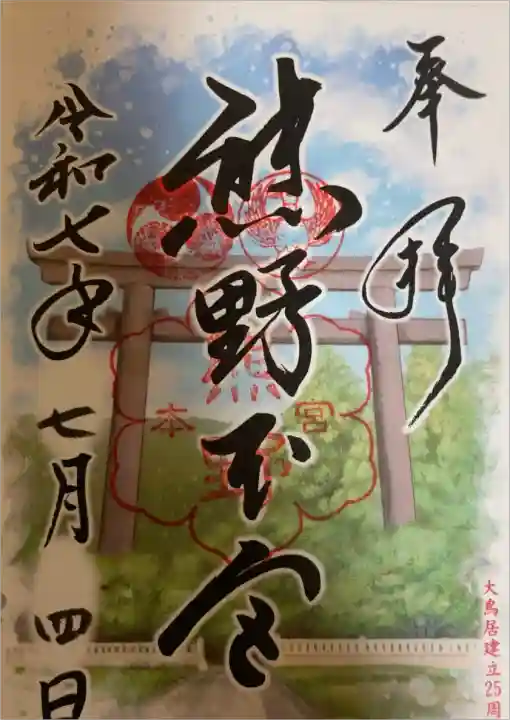 奉拝
熊野本宮
令和七年七月四日
熊野
本宮
大鳥居建立25周